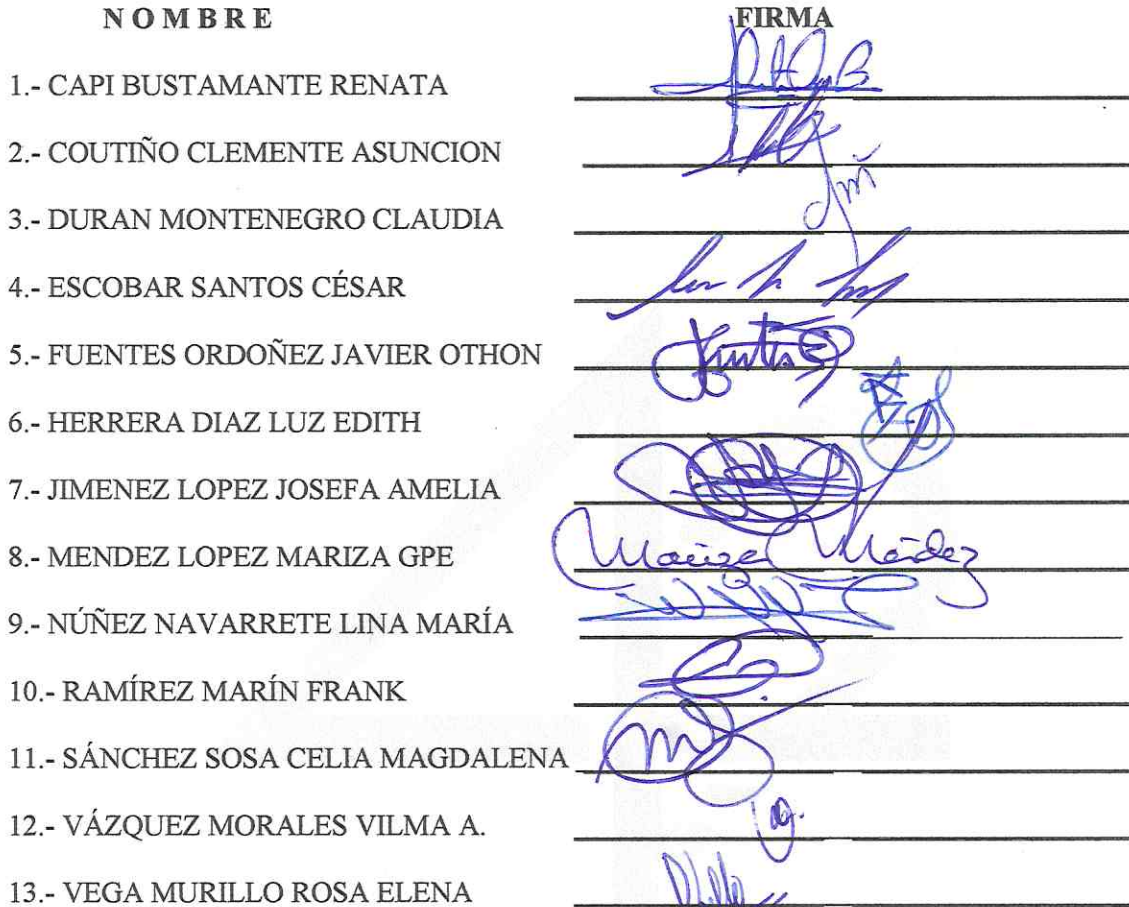 N O M B R E FIRMA
1.- CAPI BUSTAMANTE RENATA
2.- COUTIÑO CLEMENTE ASUNCION
3.- DURAN MONTENEGRO CLAUDIA
4.- ESCOBAR SANTOS CÉSAR
5.- FUENTES ORDOÑEZ JAVIER OTHON
6.- HERRERA DIAZ LUZ EDITH
7.- JIMENEZ LOPEZ JOSEFA AMELIA
8.- MENDEZ LOPEZ MARIZA GPE Mariza Méndez
9.- NÚÑEZ NAVARRETE LINA MARÍA
10.- RAMÍREZ MARÍN FRANK
11.- SÁNCHEZ SOSA CELIA MAGDALENA
12.- VÁZQUEZ MORALES VILMA A.
13.- VEGA MURILLO ROSA ELENA